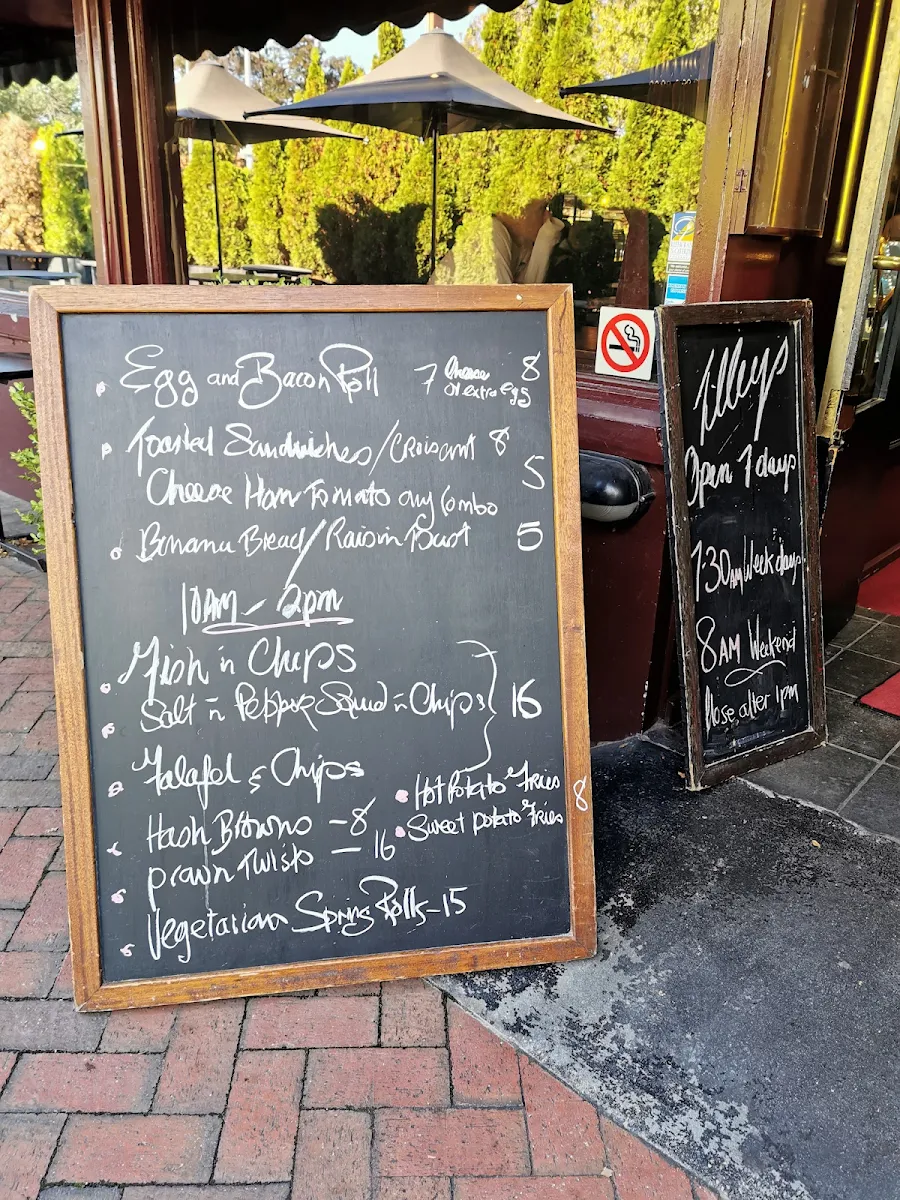 Egg and Bacon Roll 7 Cheese or extra egg 8
Toasted Sandwiches/Croissant 8
Cheese Ham Tomato any Combo 5
Banana Bread/Raisin Toast 5
10AM - 2pm
Fish n Chips
Salt n Pepper Squid n Chips 16
Falafel & Chips
Hot Potato Fries 8
Hash Browns - 8
Sweet potato Fries
prawn Twists - 16
Vegetarian Spring Rolls - 15
Tilleys
Open 7 days
7.30AM Week days
8AM Weekend
Close after 1pm